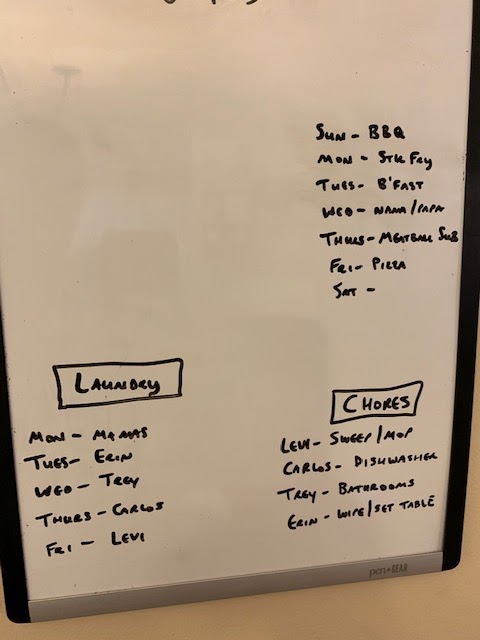 SUN - BBQ
MON - STR FRY
TUES - B'FAST
WED - NANA/PAPA
THURS - MEATBALL SUB
FRI - PIZZA
SAT -
LAUNDRY
MON - MAMAS
TUES - ERIN
WED - TREY
THURS - CARLOS
FRI - LEVI
CHORES
LEVI - SWEEP/MOP
CARLOS - DISHWASHER
TREY - BATHROOMS
ERIN - WIPE/SET TABLE
pen+GEAR